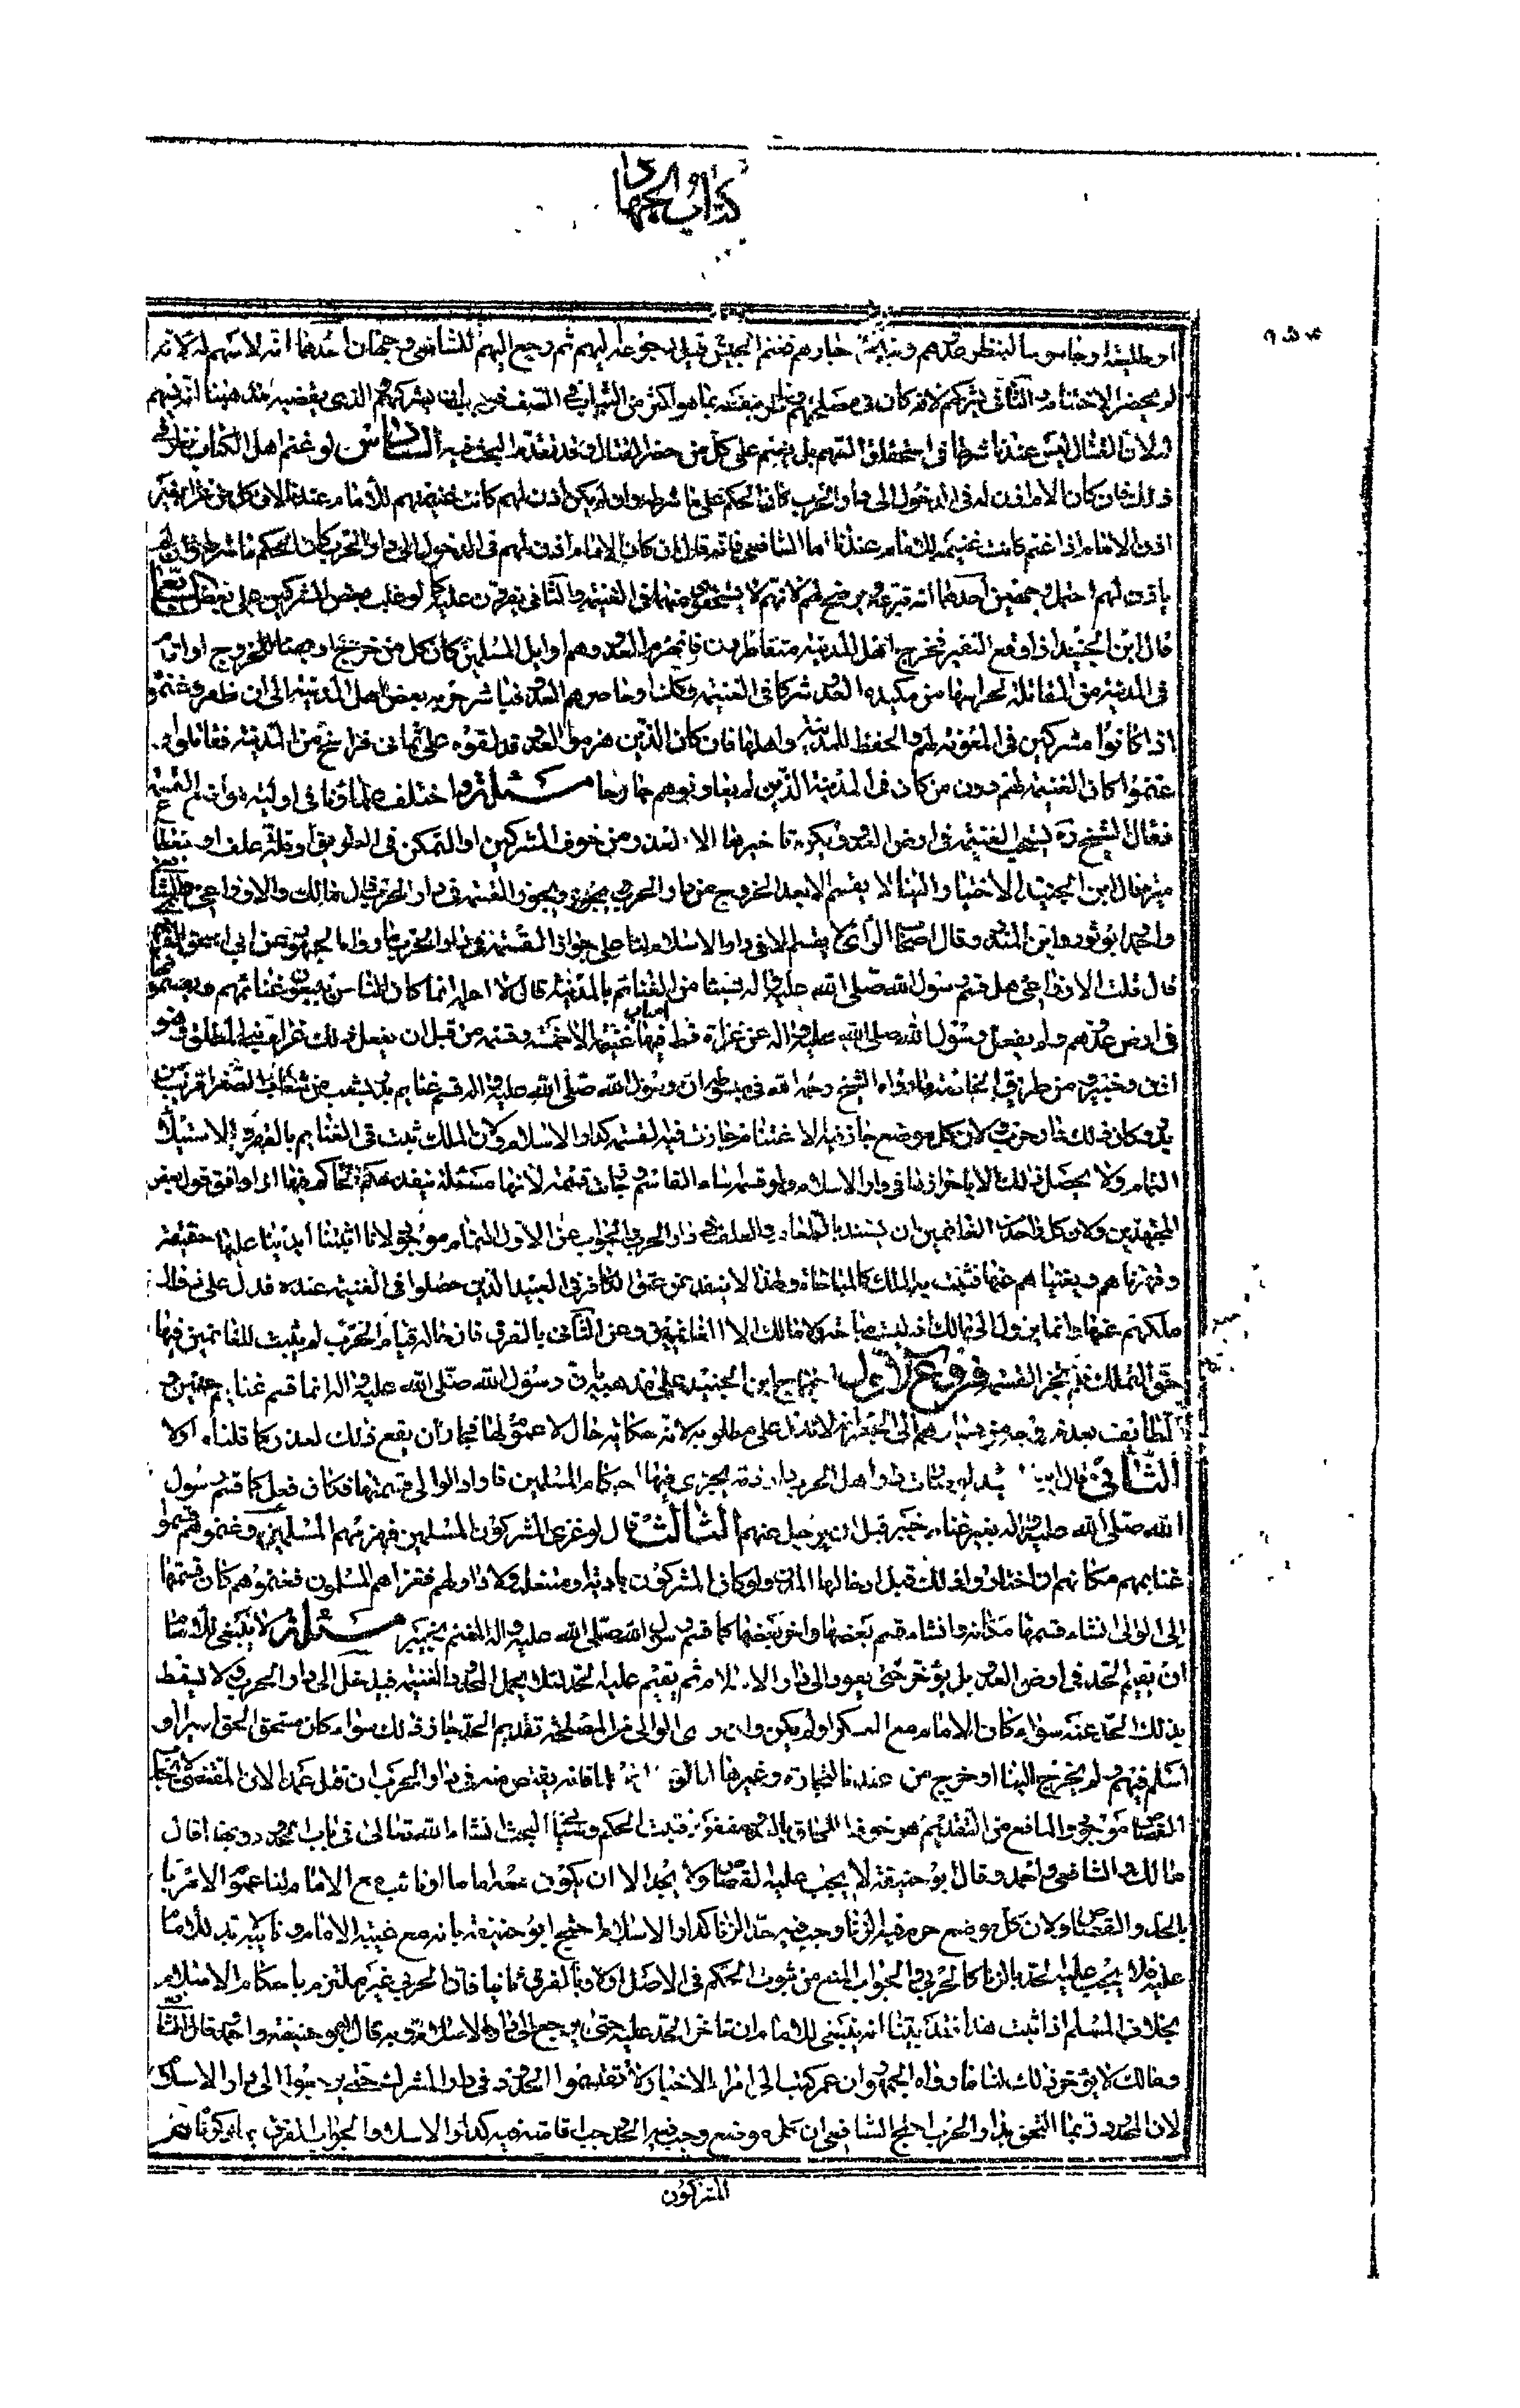 كتاب الجهاد
او طليعة او جاسوسا لينظر عددهم وينقل اخبارهم فغنم الجيش قبل رجوعه اليهم ثم رجع اليهم للشافعي وجهان احدهما انه لا يسهم له لانه
لم يحضر الاغتنام والثاني يشركهم لانه كان في مصلحتهم وخاطر بنفسه بما هو اكثر من الثبات في الصف فوجب ان يشركهم الذي يقتضيه مذهبنا انه يسهم
له لان القتال ليس عندنا شرطا في استحقاق السهم بل يقسم على كل من حضر القتال وقد تقدم البحث فيه السادس لو غنم اهل الكتاب نظر في
ذلك فان كان الامام اذن له في الدخول الى دار الحرب كان الحكم على ما شرطه وان لم يكن اذن لهم كانت غنيمتهم للامام عندنا لان كل من غزا بغير
اذن الامام اذا غنم كانت غنيمته للامام عندنا اما الشافعي فانه قال ان كان الامام اذن لهم في الدخول الى دار الحرب كان الحكم ما شرط وان لم
ياذن لهم احتمل وجهين احدهما انه يرضخ لهم لانهم لا يستحقون سهما في الغنيمة والثاني يقرون عليه كما لو غلب بعض المشركين على بعض السابع
قال ابن الجنيد اذا وقع النفير فخرج اهل المدينة متقاطرين فانهزم العدو وهم اوايل المسلمين كان كل من خرج او تهيا للخروج او اقام
في المدينة من المقاتلة لحراستها من مكيدة العدو شركا في الغنيمة وكذا لو حاصرهم العدو فباشر حربه بعض اهل المدينة الى ان ظفر وغنموا
اذا كانوا مشركين في المعونة لهم والحفظ للمدينة واهلها فان كان الذين هزموا العدو قد لقوه على ثمانى فراسخ من المدينة فقاتلوا و
غنموا كان الغنيمة لهم دون من كان في المدينة الذين لم يعاونوهم خارجا مسئلة واختلف علماؤنا في اولية موطن القسمة
فقال الشيخ ره يستحب القسمة في ارض العدو ويكره تاخيرها الا لعذر من خوف المشركين او التمكن في الطريق او قلة علف او انقطاع
ميرة وقال ابن الجنيد الاختيار الينا لا يقسم الا بعد الخروج من دار الحرب ويجوز القسمة في دار الحرب وبه قال مالك والاوزاعي والشافعي
واحمد وابو ثور وابن المنذر وقال اصحاب الرأي لا يقسم الا في دار الاسلام لنا على جواز القسمة في دار الحرب ما رواه الجمهور عن ابي اسحق الفزاري
قال قلت للاوزاعي هل قسم رسول الله صلى الله عليه واله شيئا من الغنائم بالمدينة قال لا اعلم انما كان الناس يتبعون غنائمهم ويقسمونها
في ارض عدوهم ولم يقفل رسول الله صلى الله عليه واله عن غزاة قط اصاب فيها غنيمة الا خمسه وقسمه من قبل ان يقفل من ذلك غزاة بني المصطلق وهو
ازن وخيبر ومن طريق الخاصة ما رواه الشيخ رحمه الله في مبسوطه ان رسول الله صلى الله عليه واله قسم غنايم بدر بشعب من شعاب الصفراء قريب من
بدر وكان ذلك دار حرب ولان كل موضع جاز فيه الاغتنام جازت فيه القسمة كدار الاسلام ولان الملك ثبت في الغنايم بالقهر والاستيلاء
التام ولا يحصل ذلك الا باحرازها في دار الاسلام ولو قسم اساء القاسم وجازت قسمته لانها مسئلة ينفذ حكم الحاكم فيها اذا وافق قول بعض
المجتهدين ولان كل واحد من الغانمين ان يستبد بالطعام والعلف في دار الحرب والجواب عن الاول التمام موجود لانا اثبتنا ايدينا عليها حقيقة
وقهرناهم ونفيناهم عنها فثبت به الملك كالمباحات ولهذا لا ينفذ عتق الكافر في العبيد الذين حصلوا في الغنيمة عنده فدل على زوال
ملكهم عنها وانما يزول الى مالك اذ ليست مباحة ولا مالك الا الغانمين وعن الثاني بالفرق فان حالة قيام الحرب لم يثبت للغانمين فيها
حق التملك فلم يجز القسمة فروع الاول احتج ابن الجنيد على مذهبه بان رسول الله صلى الله عليه واله انما قسم غنايم حنين و
الطائف بعد خروجه من ديارهم الى الجعرانة ولا تدل على مطلوبه لانه حكاية حال لا عموم لها فجاز ان يقع ذلك لعذر كما قلناه اولا
الثاني قال ابن الجنيد لو مات دار اهل الحرب دار ذمة يجري فيها احكام المسلمين فاراد الوالي قسمتها مكان فعل كما قسم رسول
الله صلى الله عليه واله بعض غنائم خيبر قبل ان يرحل عنهم الثالث قال لو غزى المشركون المسلمين فهزمهم المسلمون وغنموهم قسموا
غنايمهم مكانهم ان اختاروا ذلك قبل ادخالها المدن ولو كان المشركون بادية او منتقلة ولا دار لهم فغزاهم المسلمون فغنموهم كان قسمتها
الى الوالي ان شاء قسمها مكانه وان شاء قسم بعضها واخر بعضها كما قسم رسول الله صلى الله عليه واله الغنم بخيبر مسئلة لا ينبغي للامام
ان يقيم الحد في ارض العدو بل يؤخر حتى يعود الى دار الاسلام ثم يقيم عليه الحد لئلا يحمل المحدود الغضب فيدخل الى دار الحرب ولا يسقط
بذلك الحد عنه سواء كان الامام مع العسكر او لم يكن وان راى الوالي من المصلحة تقديم الحد جاز ذلك سواء كان مستحق الحق اسيرا او
اسلم فيهم ولم يخرج الينا او خرج من عندنا للتجارة وغيرها اما لو قتل مسلما فانه يقتص منه في دار الحرب ان قتل عمدا لان المقتضي لايجاب
القصاص موجود والمانع من التقديم هو خوف اللحاق بالعدو مفقود فيثبت الحكم وسياتي البحث انشاء الله تعالى في باب الحدود وبهذا قال
مالك والشافعي واحمد وقال ابو حنيفة لا يجب عليه القصاص ولا الحد الا ان يكون معه امام او نائب مع الامام لنا عموم الامر با
بالحد والقصاص ولان كل موضع حرم فيه الزنا وجب فيه حد الزنا كدار الاسلام احتج ابو حنيفة بانه مع غيبة الامام ونائبه لا يد للامام
عليه فلا يجب عليه الحد بالزنا كالحربي والجواب المنع من ثبوت الحكم في الاصل اولا وبالفرق ثانيا فان الحربي غير ملتزم باحكام الاسلام
بخلاف المسلم اذا ثبت هذا فقد بينا انه ينبغي للامام ان تاخر الحد عليه حتى يرجع الى دار الاسلام وبه قال ابو حنيفة واحمد وقال الشافعي
ومالك لا يؤخر ذلك لنا ما رواه الجمهور ان عمر كتب الى امراء الاجناد لا تقيموا الحدود في دار الشرك حتى يرجعوا الى دار الاسلام
لان المحدود ربما التحق بدار الحرب احتج الشافعي ان كل موضع وجب فيه الحد وجب اقامته فيه كدار الاسلام والجواب الفرق
المشركون